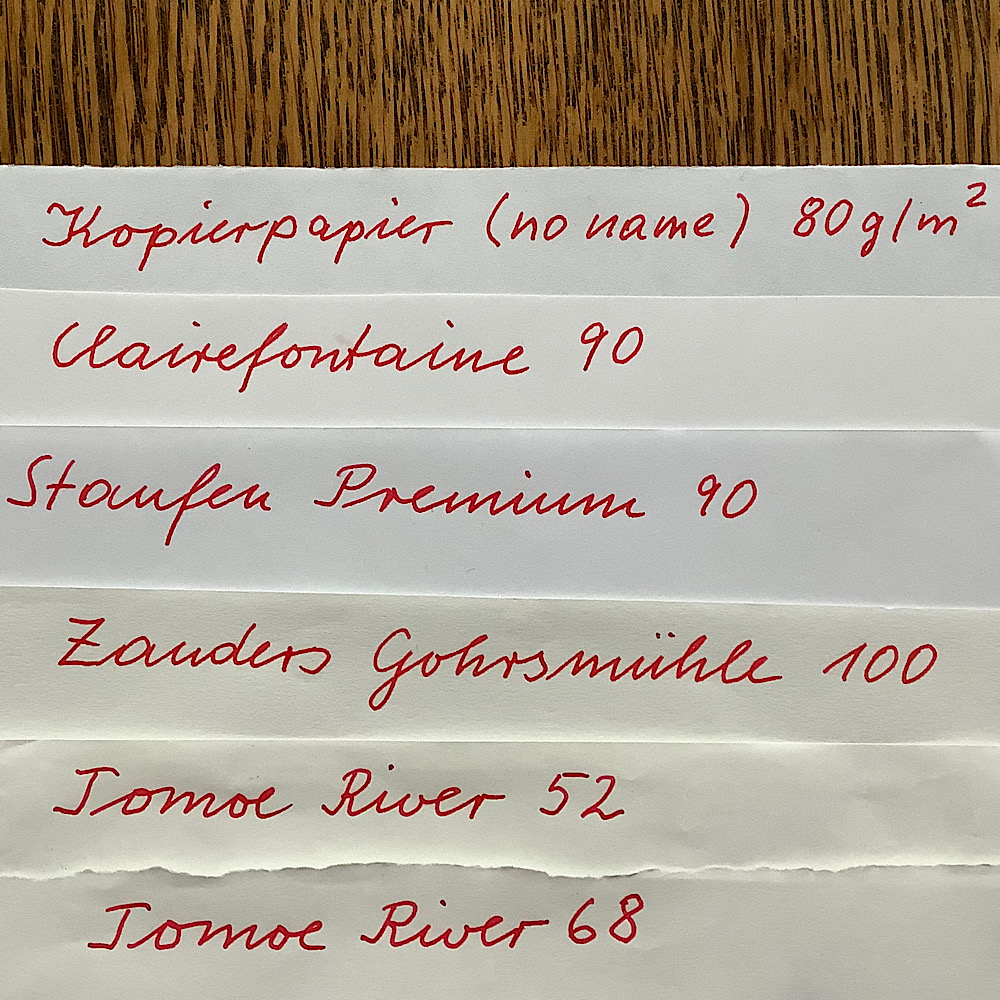 Kopierpapier (no name) 80g/m²
Clairefontaine 90
Staufen Premium 90
Zanders Gohrsmühle 100
Tomoe River 52
Tomoe River 68